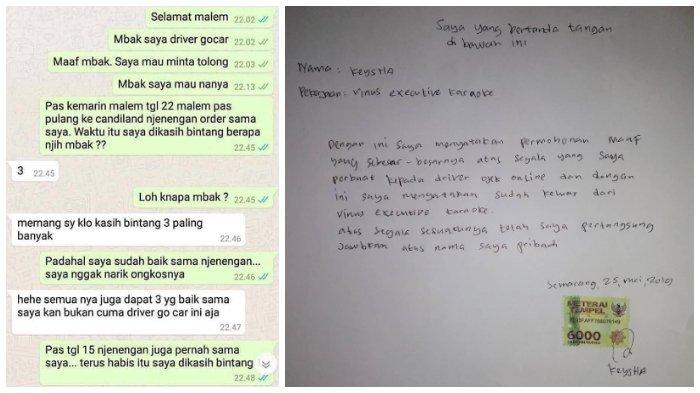 Selamat malem
22.02
Mbak saya driver gocar
22.02
Maaf mbak. Saya mau minta tolong
22.03
Mbak saya mau nanya
22.13
Pas kemarin malem tgl 22 malem pas
pulang ke candiland njenengan order sama
saya. Waktu itu saya dikasih bintang berapa
njih mbak ??
22.45
3
22.45
Loh knapa mbak ?
22.45
memang sy klo kasih bintang 3 paling
banyak
22.46
Padahal saya sudah baik sama njenengan...
saya nggak narik ongkosnya
22.46
hehe semua nya juga dapat 3 yg baik sama
saya kan bukan cuma driver go car ini aja
22.47
Pas tgl 15 njenengan juga pernah sama
saya... terus habis itu saya dikasih bintang
22.48
Saya yang bertanda tangan
di bawah ini
Nama : KeysHA
Pekerjaan : Vinus executive karaoke
Dengan ini saya menyatakan permohonan maaf
yang sebesar-besarnya atas segala yang saya
perbuat kepada driver ojek online dan dengan
ini saya menyatakan sudah keluar dari
Vinus executive karaoke.
atas segala sesuatunya telah saya pertanggung
jawabkan atas nama saya pribadi
Semarang, 25, mei, 2019
METERAI
TEMPEL
6000
KeysHA